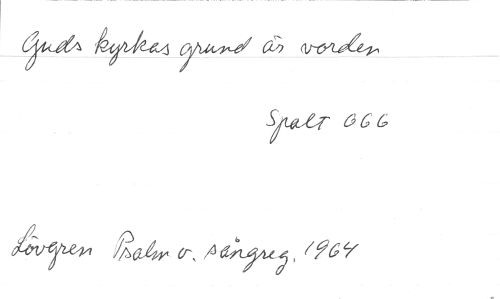 Guds kyrkas grund är vorden
Spalt 666
Lövgren Psalm o. sångreg. 1964